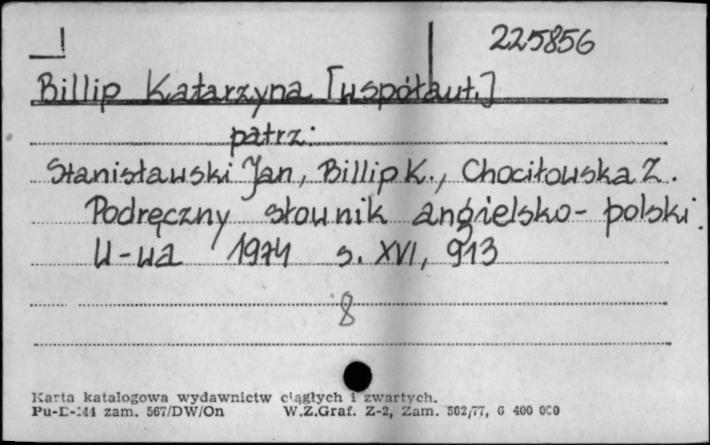 225856
Billip Katarzyna [współaut.]
patrz:
Stanisławski Jan, Billip K., Chociłowska Z.
Podręczny słownik angielsko-polski.
W-wa 1974 s. XVI, 913
8
Karta katalogowa wydawnictw ciągłych i zwartych.
Pu-D-144 zam. 567/DW/On W.Z.Graf. Z-2, Zam. 502/77, G 400 000